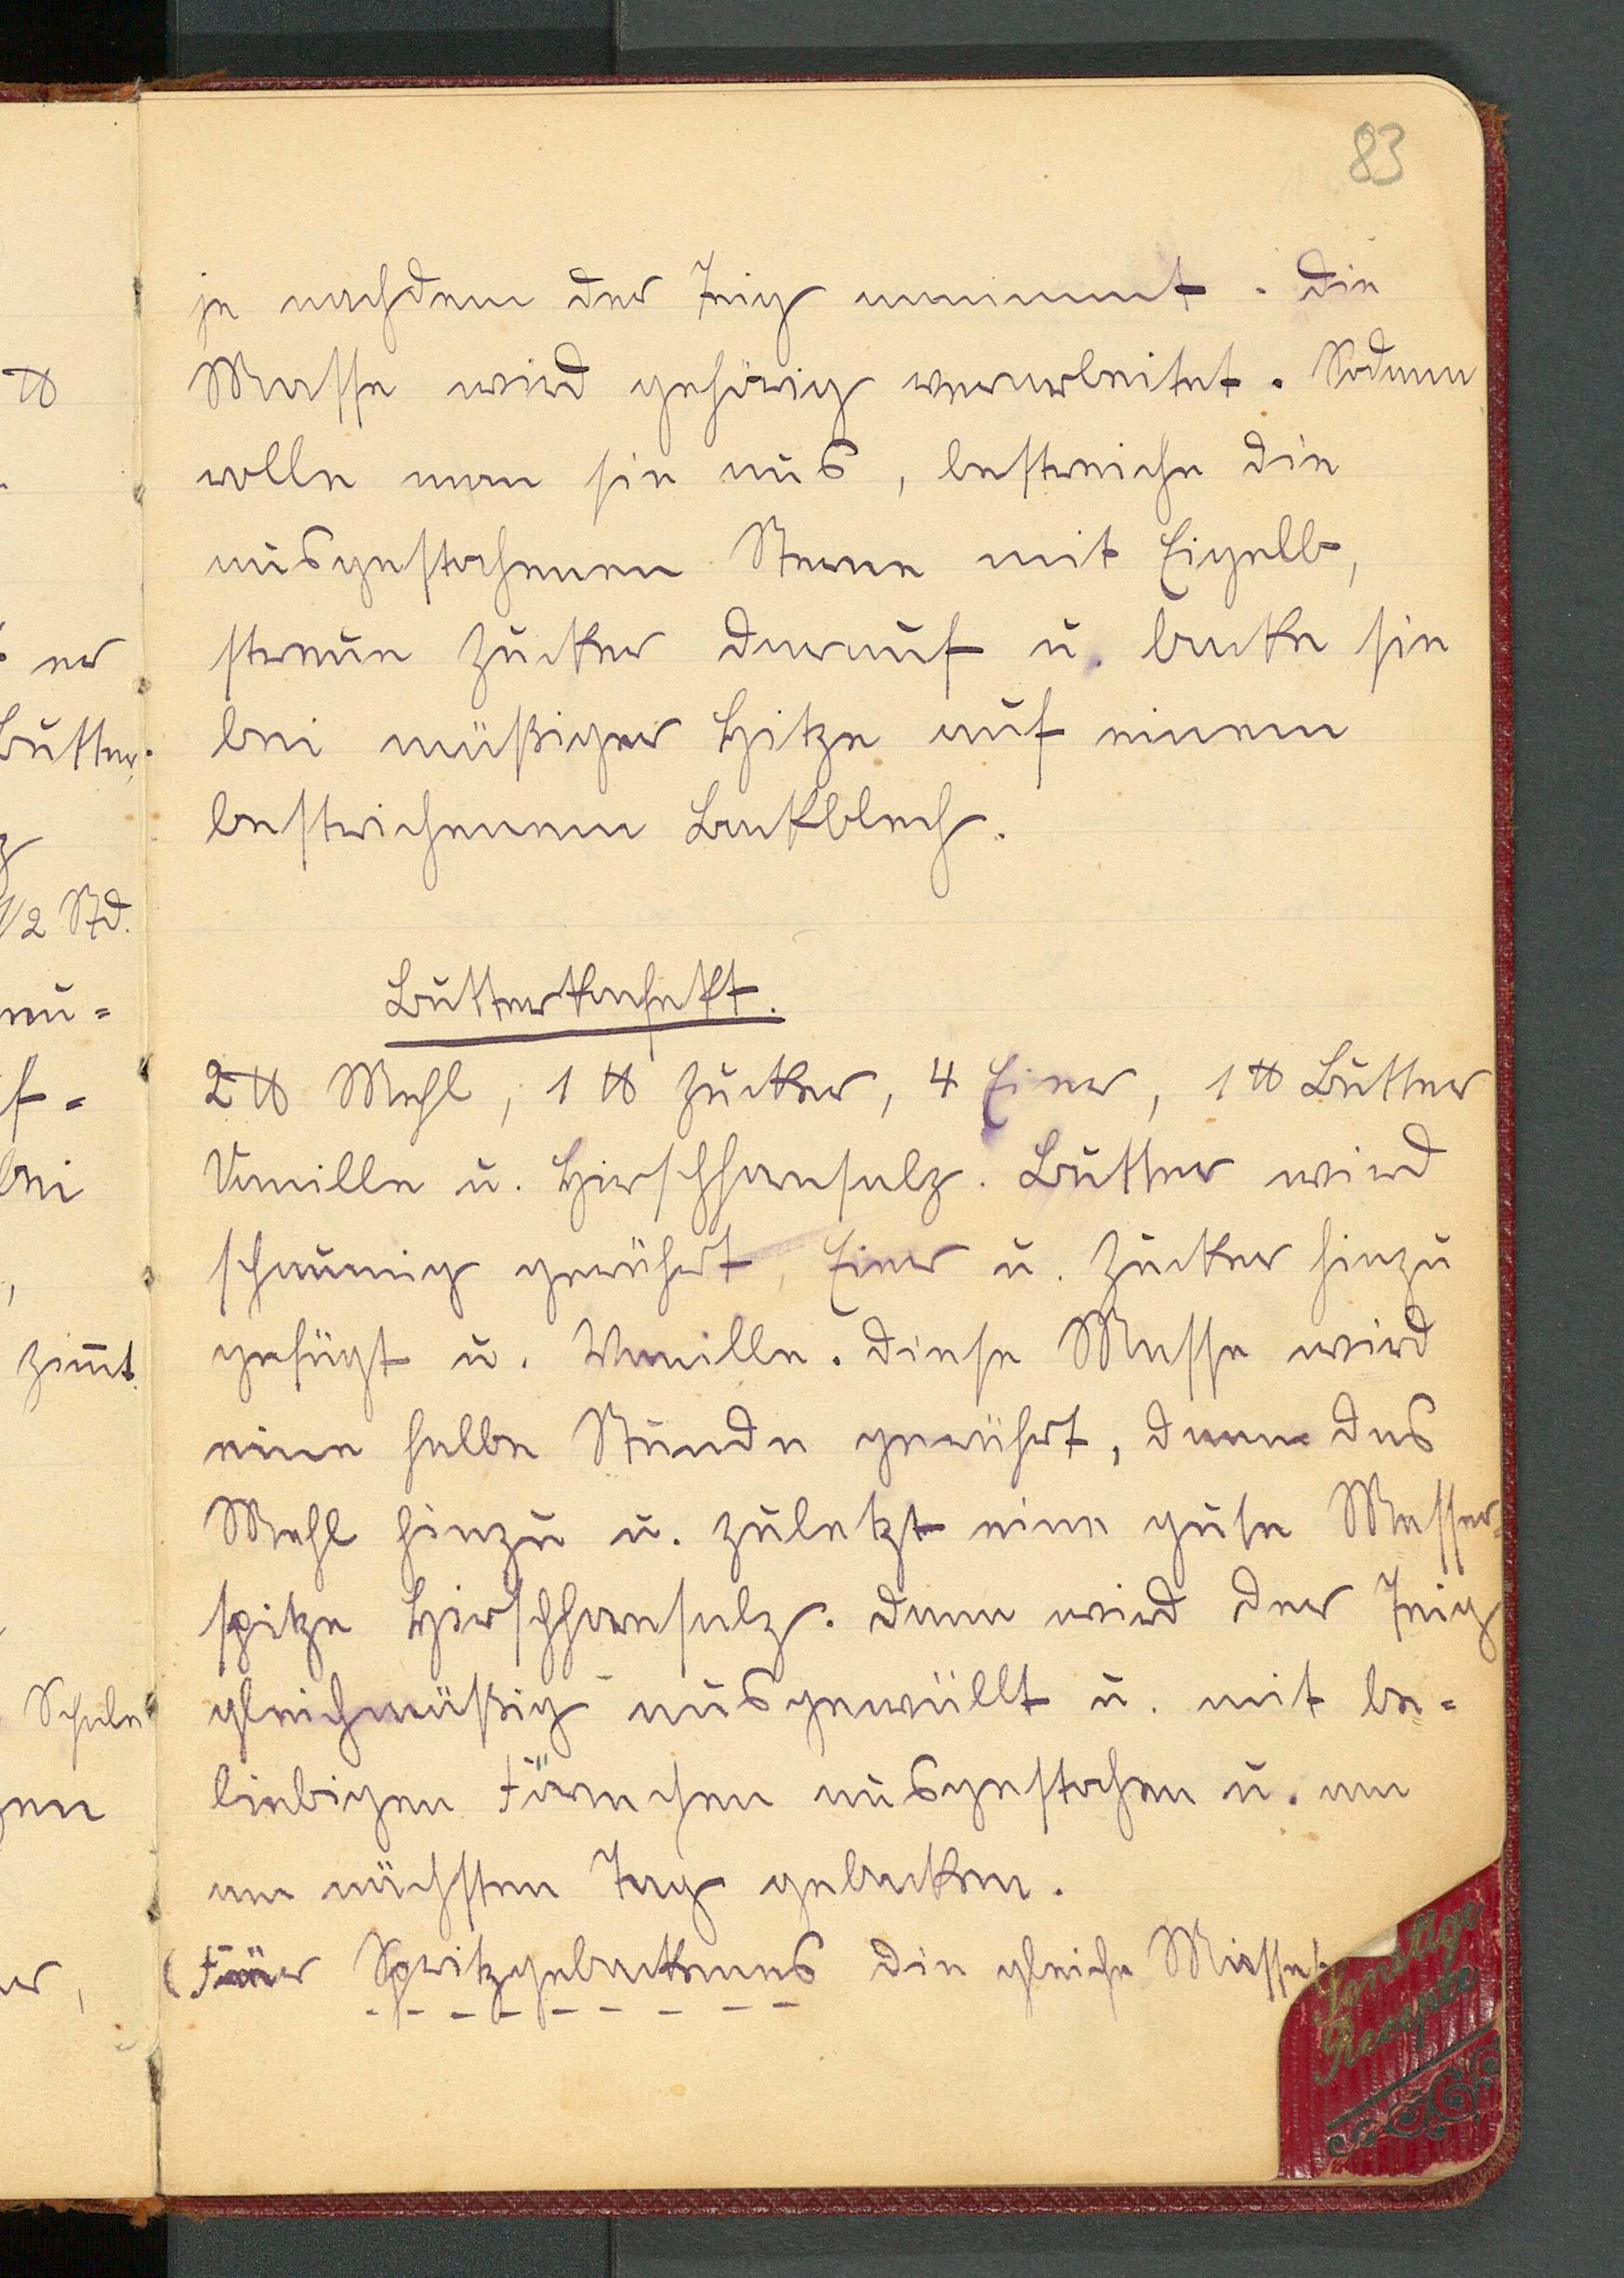 83
je nachdem der Teig annimmt. Die
Masse wird gehörig verarbeitet. Sodann
rolle man sie aus, bestreiche die
ausgestochenen Sterne mit Eigelb,
streue Zucker darauf u. backe sie
bei mäßiger Hitze auf einem
bestrichenen Backblech.
Butterkonfekt.
2 ℔ Mehl, 1 ℔ Zucker, 4 Eier, 1 ℔ Butter
Vanille u. Hirschhornsalz. Butter wird
schaumig gerührt, Eier u. Zucker hinzu
gefügt u. Vanille. Diese Masse wird
eine halbe Stunde gerührt, dann das
Mehl hinzu u. zuletzt eine gute Messer-
spitze Hirschhornsalz. Dann wird der Teig
gleichmäßig ausgewällt u. mit be-
liebigen Förmchen ausgestochen u. am
am nächsten Tag gebacken.
(Für Spritzgebackenes die gleiche Masse
Sonstige
Recepte
℔
er
Butter.
1/2 Std.
bei
Zimt
Schale